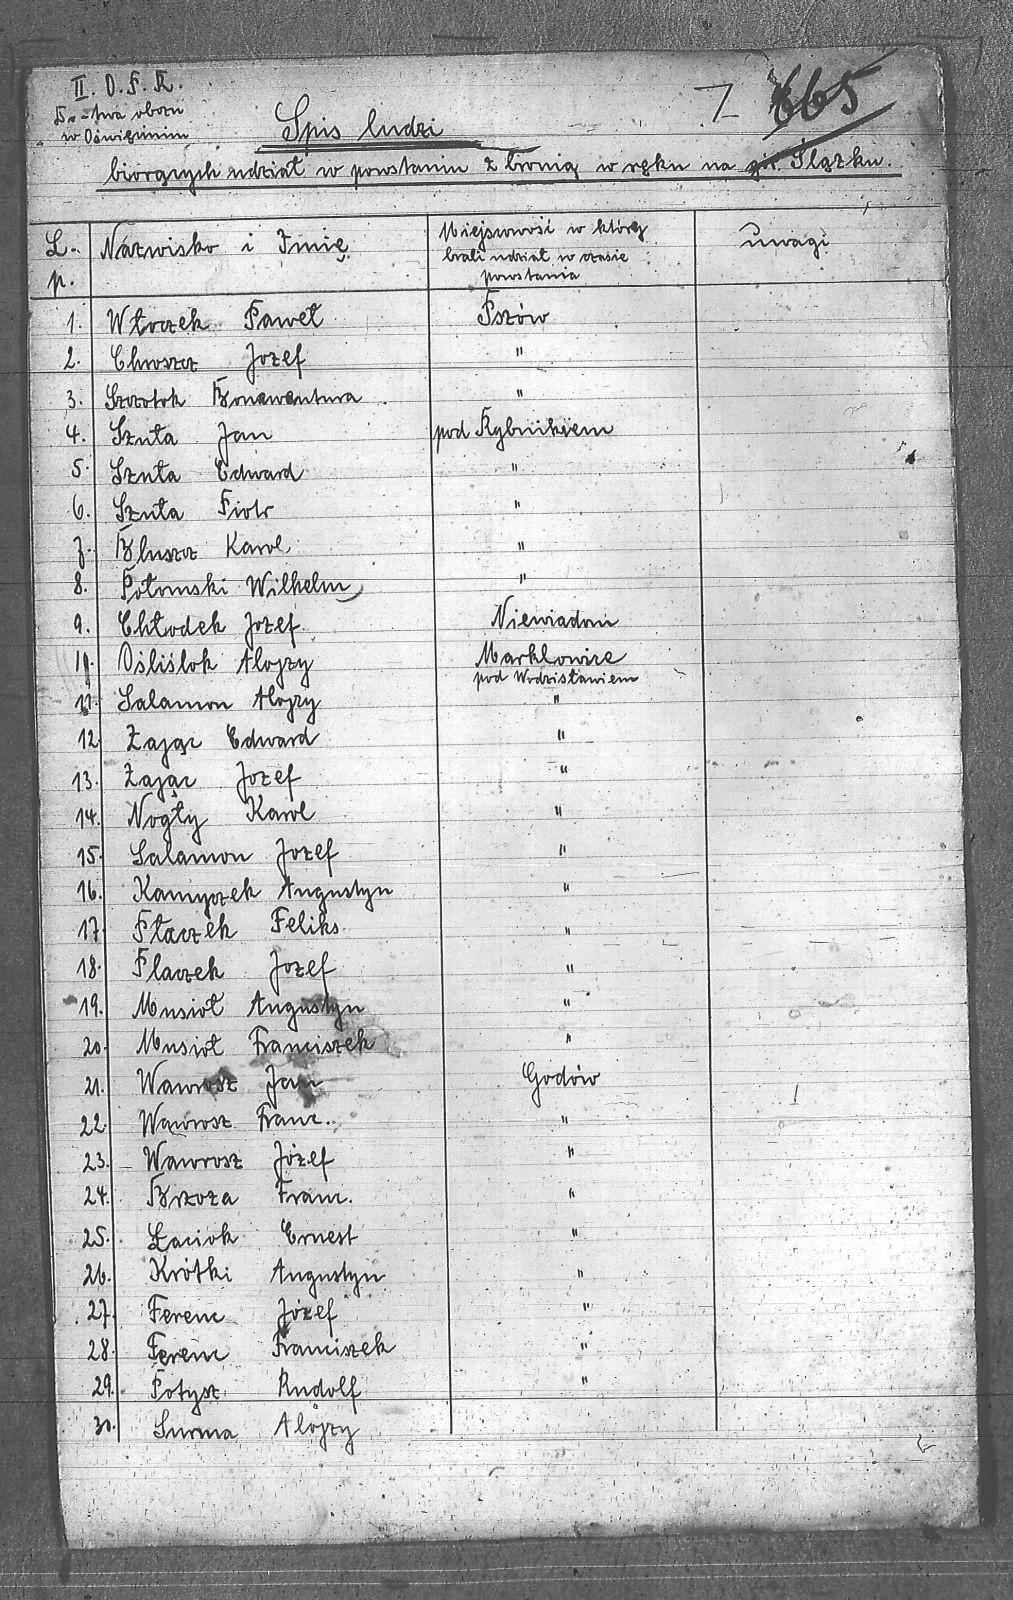 II. O. F. K.
D-twa obozu
w Oświęcimiu
7 665
Spis ludzi
biorących udział w powstaniu z bronią w ręku na gór. Śląsku.
L. p. Nazwisko i Imię Miejscowość w której brali udział w czasie powstania uwagi
1. Włoczek Paweł Pszów
2. Chroszcz Jozef "
3. Szczotok Bonawentura "
4. Szuła Jan pod Rybnikiem
5. Szuła Edward "
6. Szuła Piotr "
7. Bluszcz Karol "
8. Połomski Wilhelm "
9. Chłodek Jozef Niewiadom
10. Ośliślok Alojzy Marklowice
pod Wodzisławiem
11. Salamon Alojzy "
12. Zając Edward "
13. Zając Jozef "
14. Nogły Karol "
15. Salamon Jozef "
16. Kamyczek Augustyn "
17. Płaczek Feliks "
18. Placzek Jozef "
19. Musioł Augustyn "
20. Musioł Franciszek "
21. Wawrosz Jan Godów
22. Wawrosz Franc. "
23. Wawrosz Józef "
24. Brzoza Franc. "
25. Łaciok Ernest "
26. Krótki Augustyn "
27. Ferenc Józef "
28. Ferenc Franciszek "
29. Potysz Rudolf "
30. Surma Alojzy